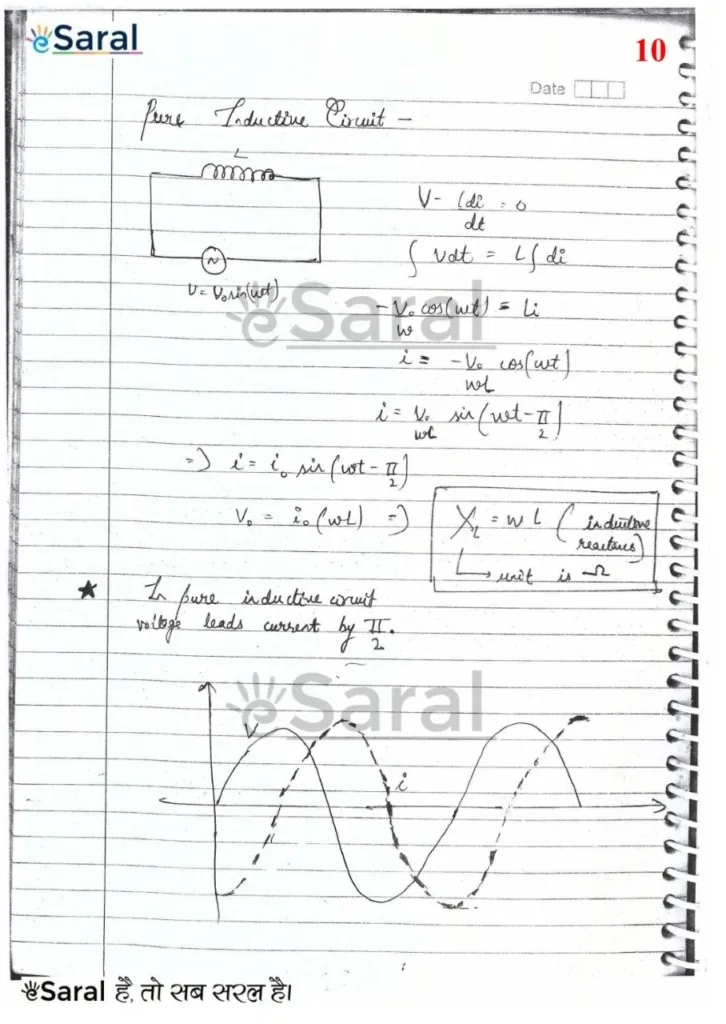 eSaral
10
Date
Pure Inductive Circuit -
L
V = V₀ sin(wt)
V - L di/dt = 0
∫ Vdt = L ∫ di
- V₀/w cos(wt) = Li
i = - V₀/wL cos(wt)
i = V₀/wL sin(wt - π/2)
=) i = i₀ sin(wt - π/2)
V₀ = i₀(wL) =)
X_L = wL (inductive
reactance)
unit is Ω
★ In pure inductive circuit
voltage leads current by π/2.
V
i
eSaral
eSaral
eSaral है, तो सब सरल है।